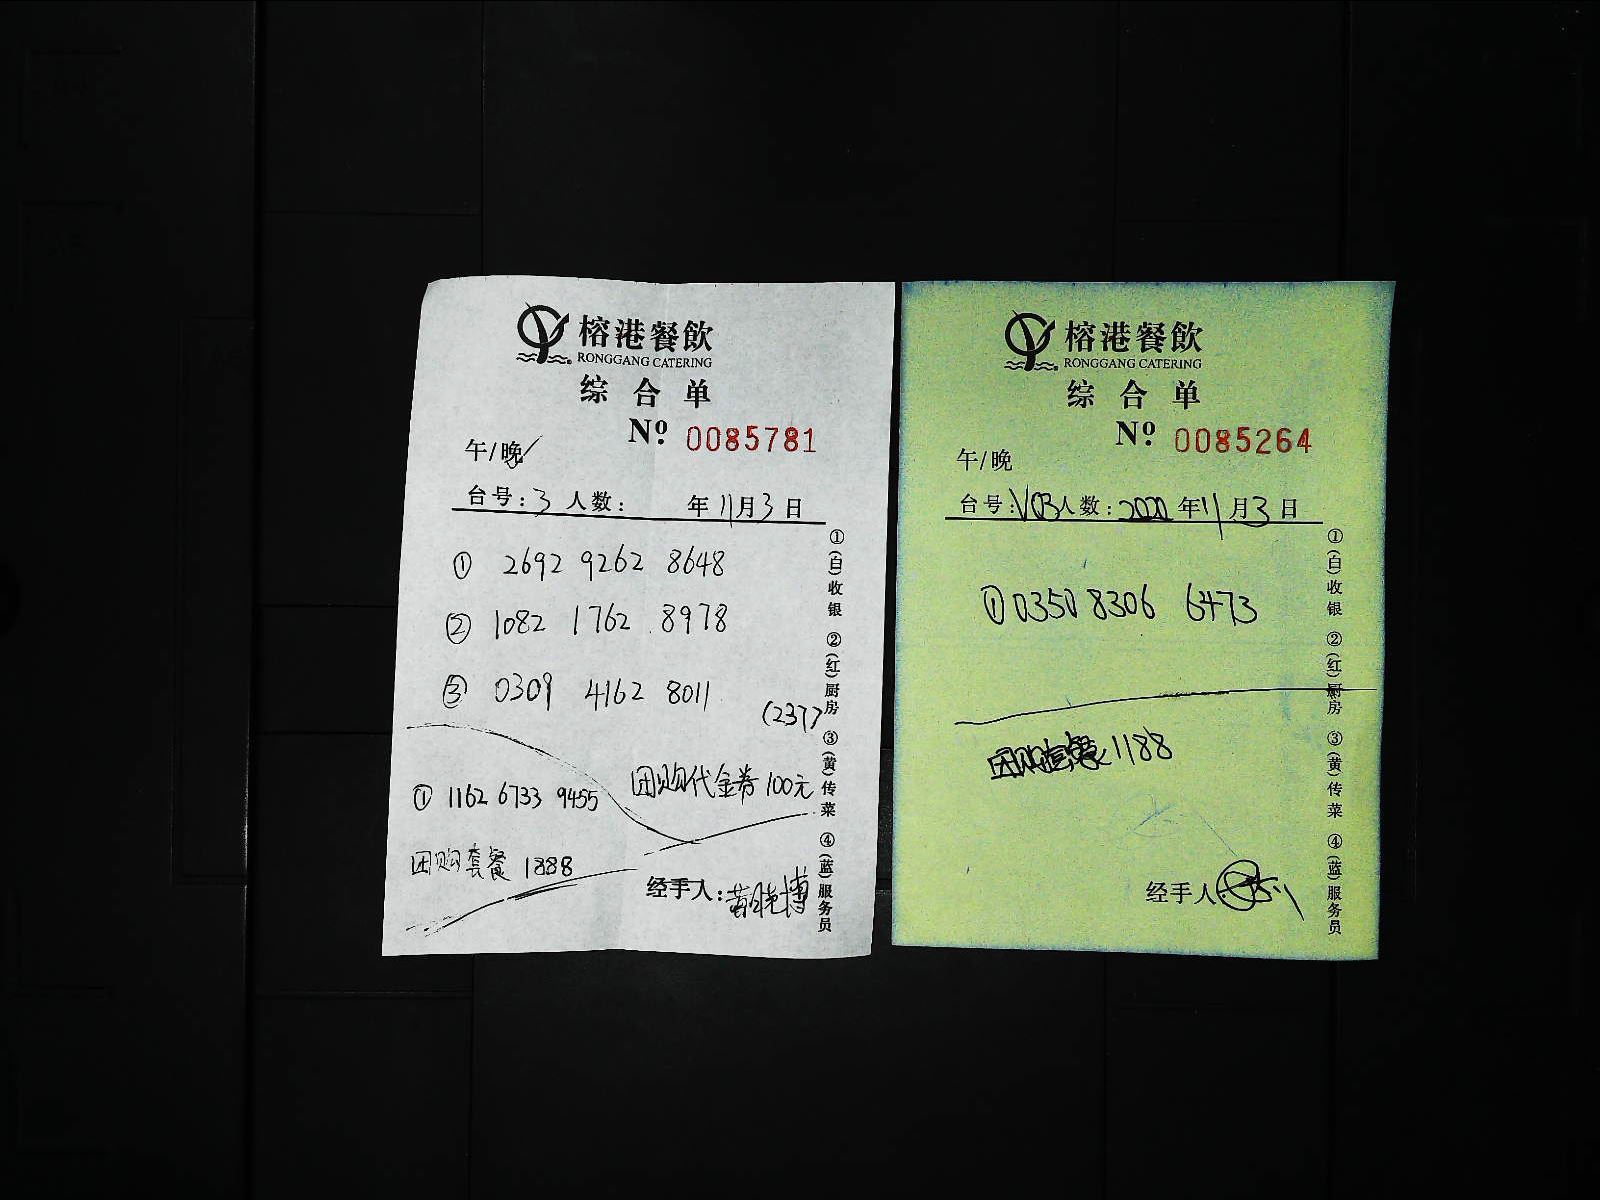 榕港餐飲
RONGGANG CATERING
综合单
Nº 0085781
午/晚
台号:3 人数: 年11月3日
① 2692 9262 8648
② 1082 1762 8978
③ 0309 4162 8011
(237)
团购代金券100元
① 1162 6733 9455
团购套餐 1888
经手人:黄晓博
①(白)收银 ②(红)厨房 ③(黄)传菜 ④(蓝)服务员
榕港餐飲
RONGGANG CATERING
综合单
Nº 0085264
午/晚
台号:V03人数:2020年11月3日
①0350 8306 6473
团购套餐1188
经手人
①(白)收银 ②(红)厨房 ③(黄)传菜 ④(蓝)服务员